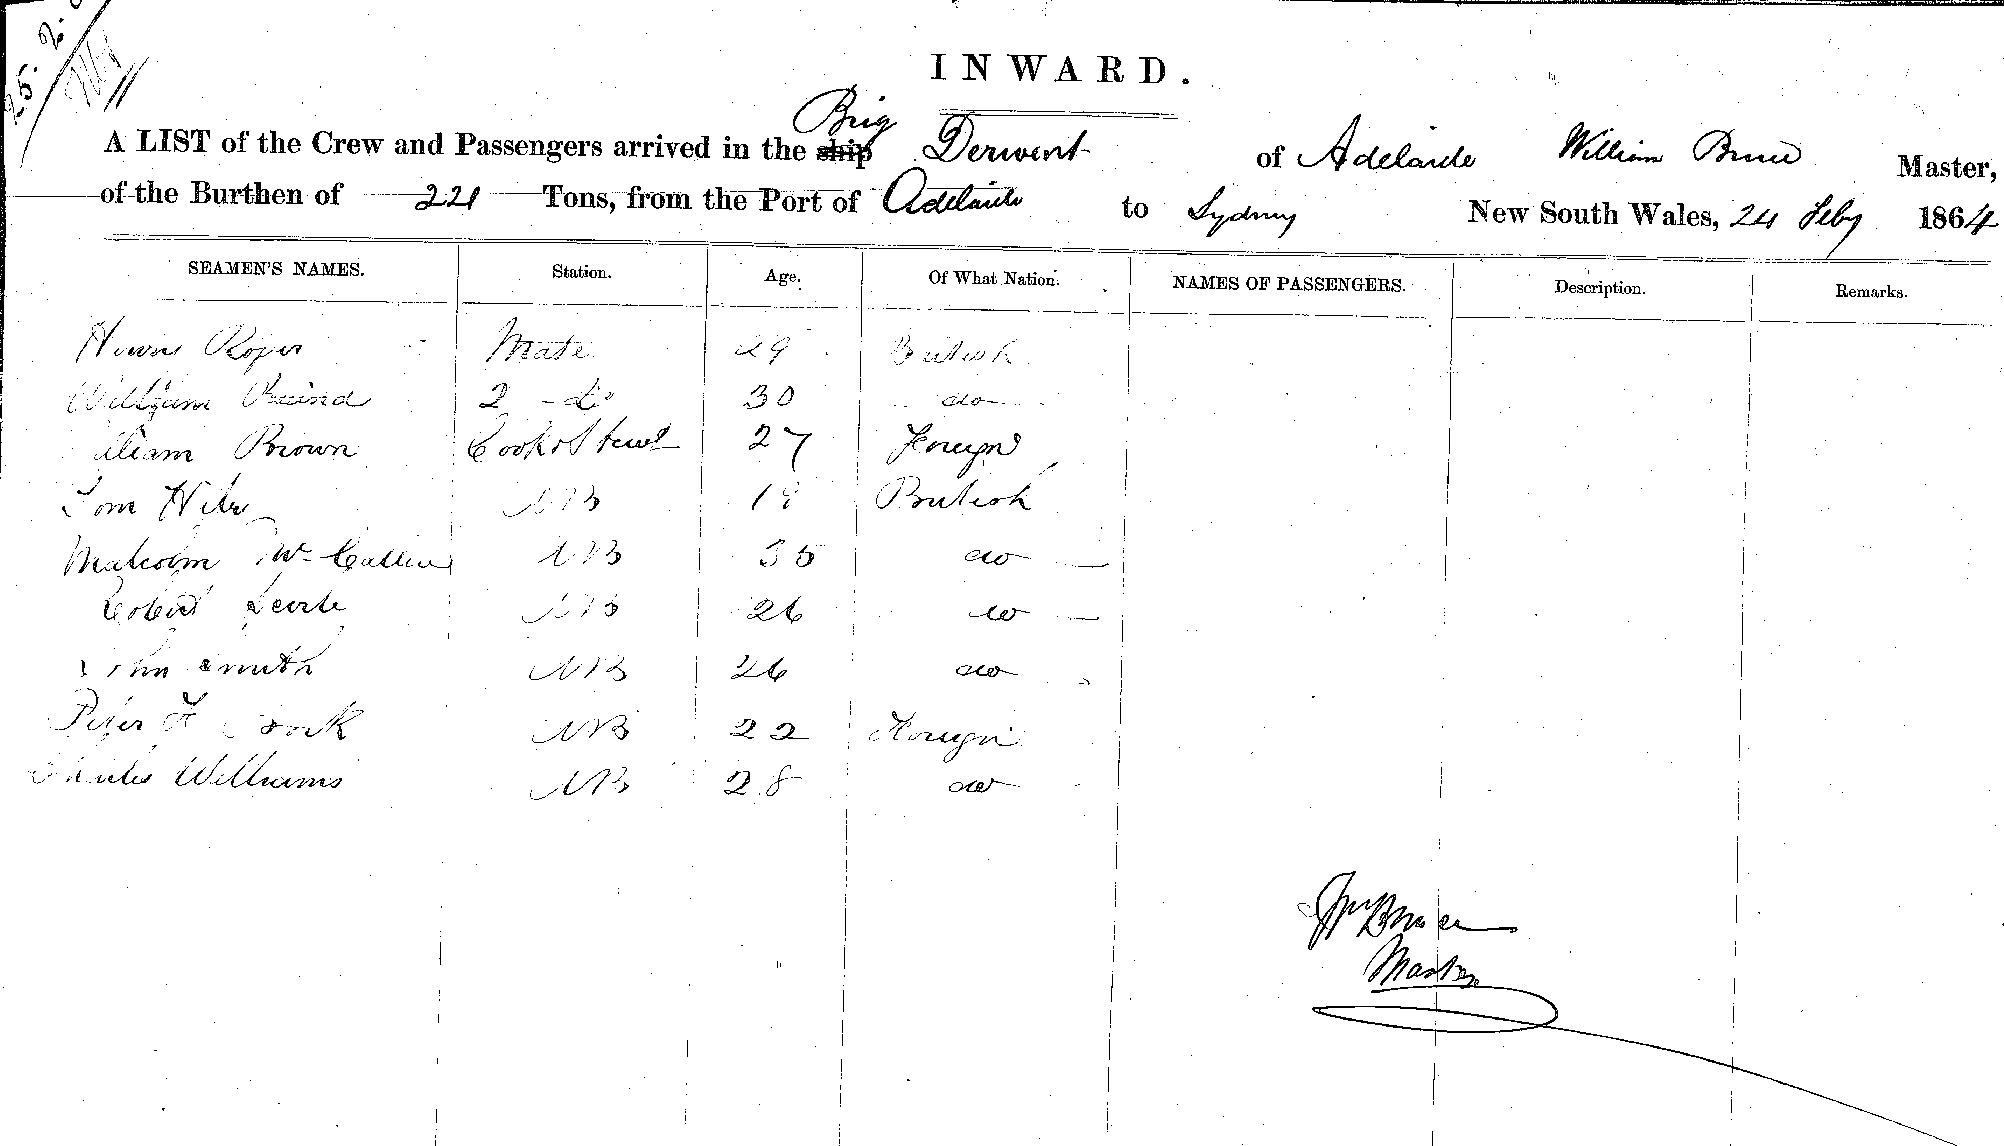 25. 2.
INWARD.
A LIST of the Crew and Passengers arrived in the ship Brig Derwent of Adelaide William Bruce Master,
of the Burthen of 221 Tons, from the Port of Adelaide to Sydney New South Wales, 24 Feby 1864
SEAMEN'S NAMES. Station. Age. Of What Nation. NAMES OF PASSENGERS. Description. Remarks.
Roper Mate 29 British
William 2 - Do 30 do
William Brown Cook & Stewd 27 Foreign
Tom AB British
Malcolm McCallum AB 35 do
Robert AB 26 do
John Smith AB 26 do
Peter F AB 22 Foreign
Charles Williams AB 28 do
Wm Bruce
Master